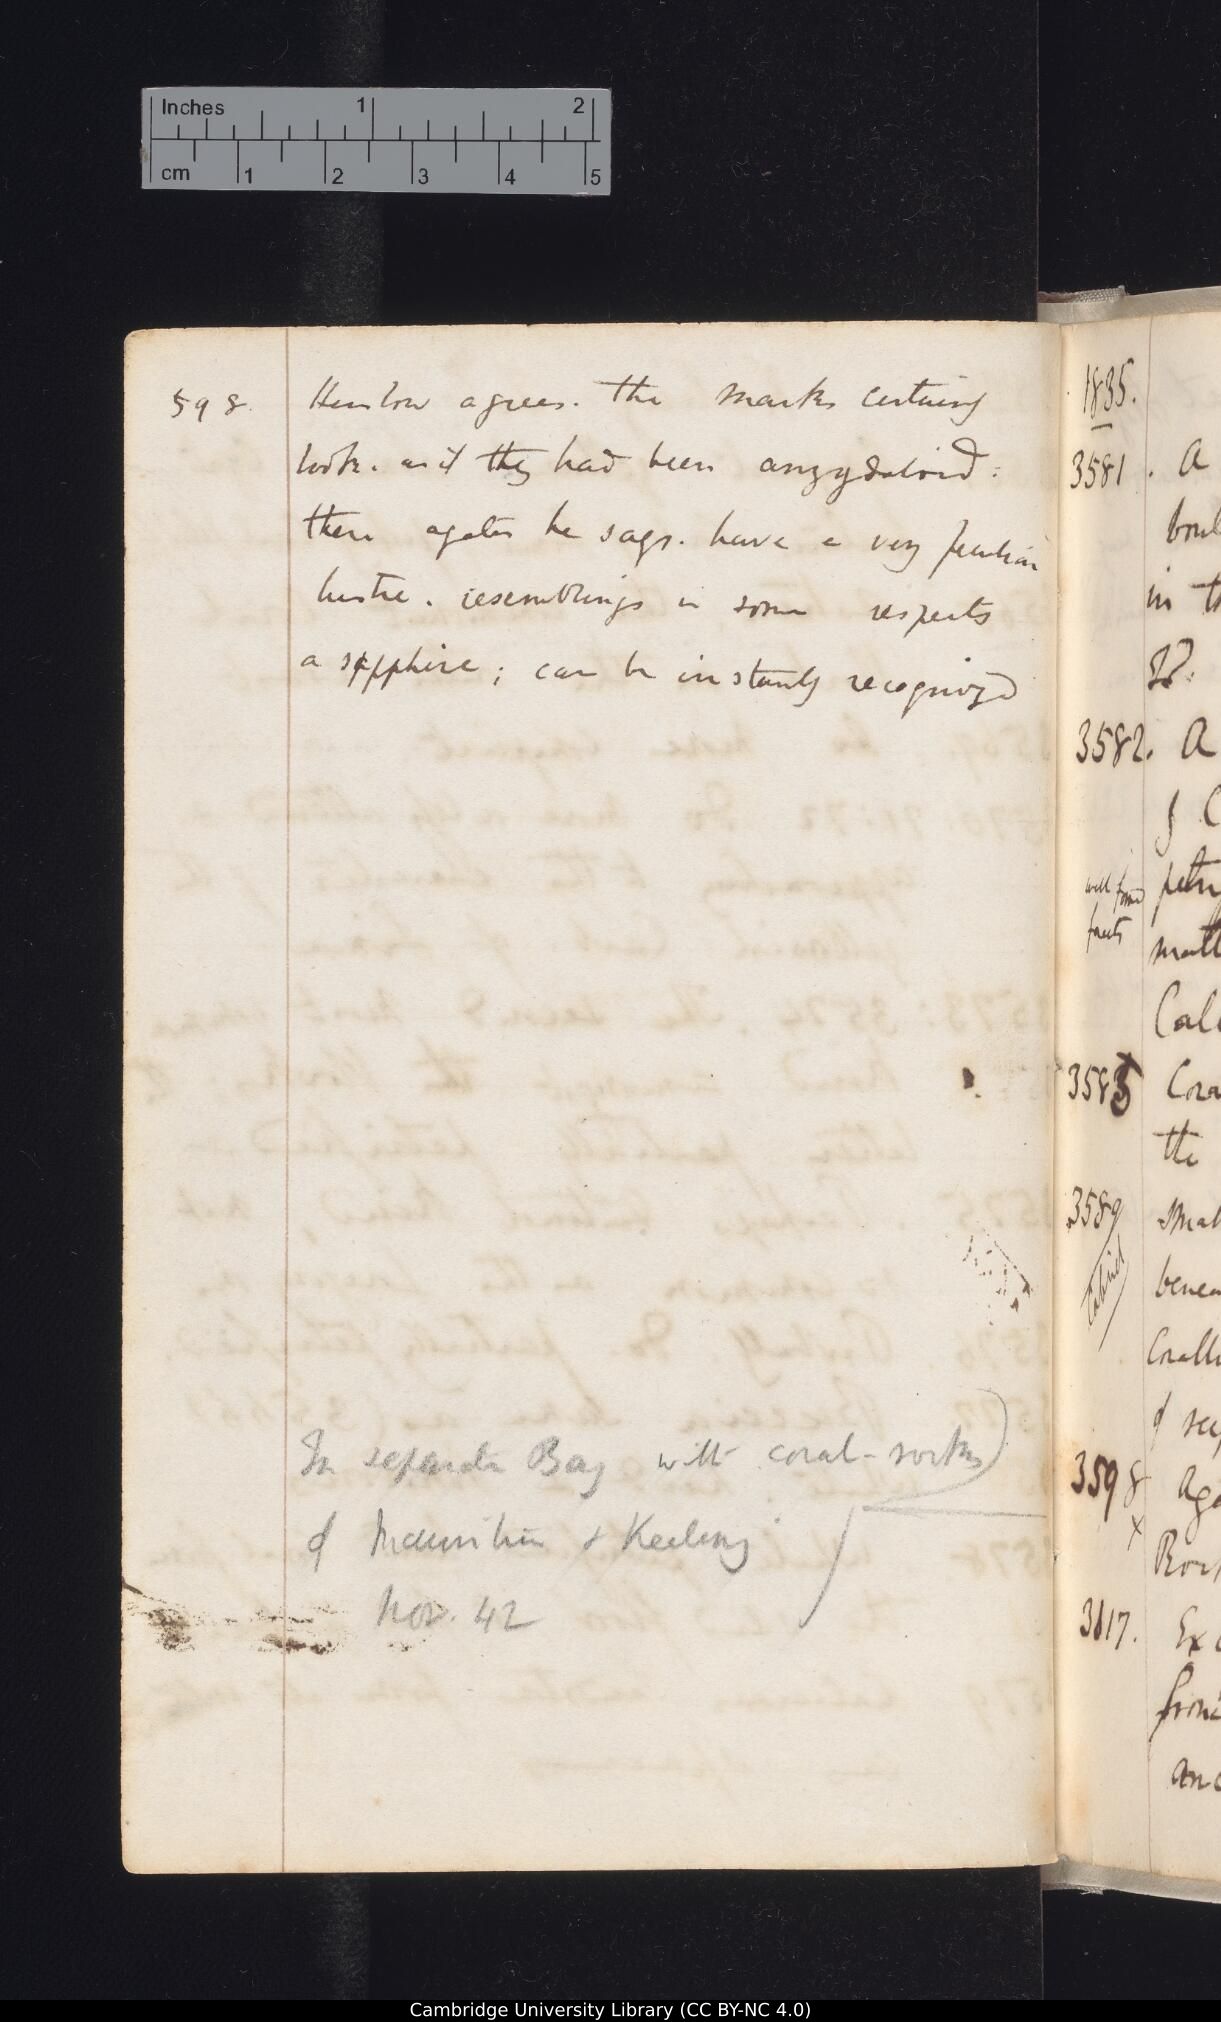 Inches 1 2
cm 1 2 3 4 5
598 Henslow agrees. The marks certainly
look. as if they had been amygdaloid:
these agates he says. have a very peculiar
lustre. resembling in some respects
a sapphire; can be instantly recognized
In separate Bag with coral-rocks
of Mauritius & Keeling
Nov. 42
1835.
3581. A
in
3582. A
well formed petri
facets
matt
Calc
3585 Cora
the
3589 Smal
Cabinet benea
Coralli
of
3598 Aga
x Rock
3617. Exc
from
and
Cambridge University Library (CC BY-NC 4.0)